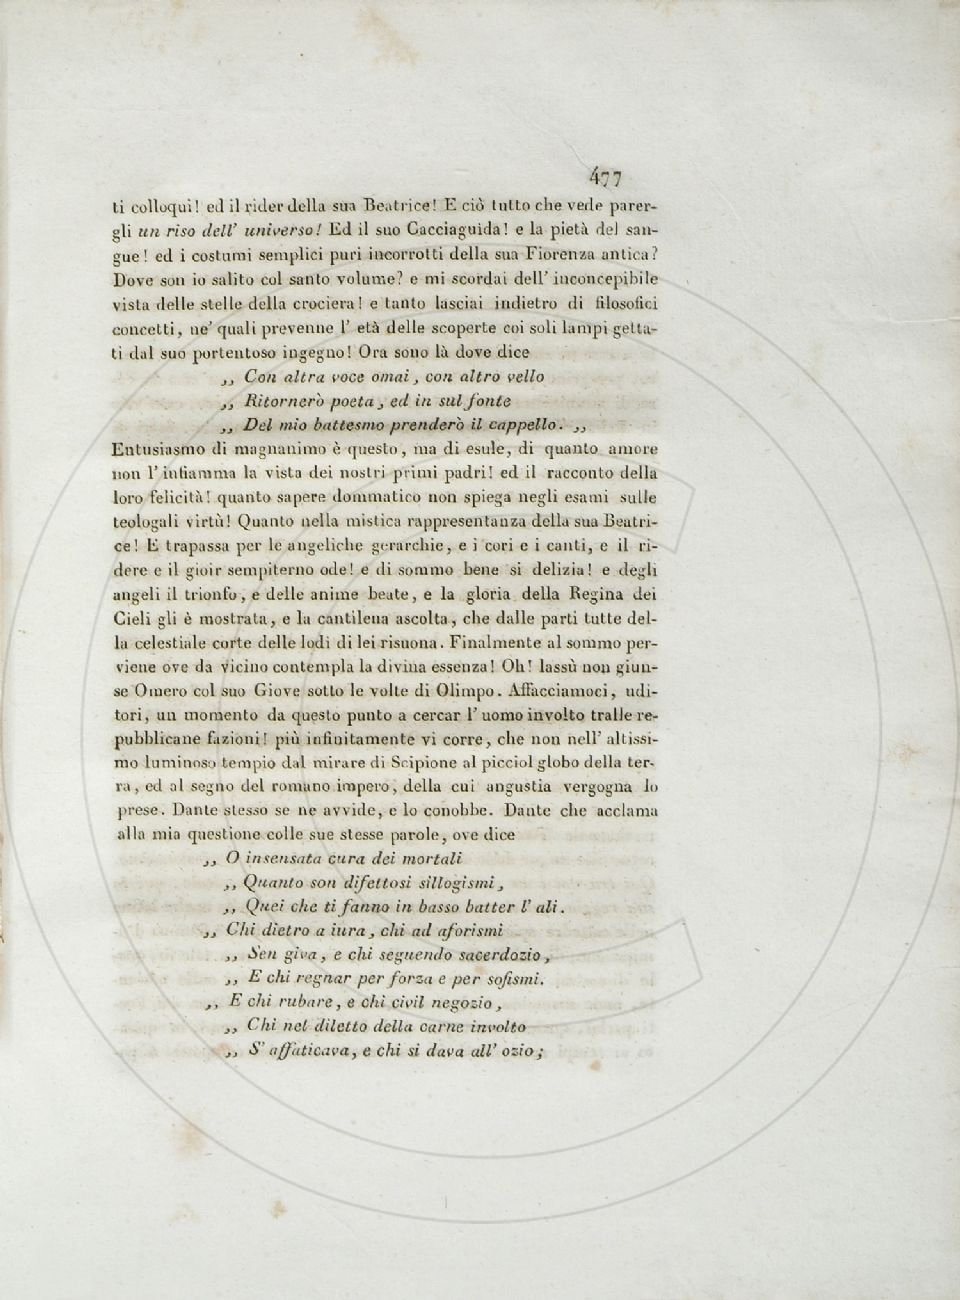 477
ti colloqui! ed il rider della sua Beatrice! E ciò tutto che vede parer-
gli un riso dell' universo! Ed il suo Cacciaguida! e la pietà del san-
gue! ed i costumi semplici puri incorrotti della sua Fiorenza antica?
Dove son io salito col santo volume? e mi scordai dell' inconcepibile
vista delle stelle della crociera! e tanto lasciai indietro di filosofici
concetti, ne' quali prevenne l' età delle scoperte coi soli lampi getta-
ti dal suo portentoso ingegno! Ora sono là dove dice
,, Con altra voce omai, con altro vello
,, Ritornerò poeta, ed in sul fonte
,, Del mio battesmo prenderò il cappello. ,,
Entusiasmo di magnanimo è questo, ma di esule, di quanto amore
non l' infiamma la vista dei nostri primi padri! ed il racconto della
loro felicità! quanto sapere dommatico non spiega negli esami sulle
teologali virtù! Quanto nella mistica rappresentanza della sua Beatri-
ce! E trapassa per le angeliche gerarchie, e i cori e i canti, e il ri-
dere e il gioir sempiterno ode! e di sommo bene si delizia! e degli
angeli il trionfo, e delle anime beate, e la gloria della Regina dei
Cieli gli è mostrata, e la cantilena ascolta, che dalle parti tutte del-
la celestiale corte delle lodi di lei risuona. Finalmente al sommo per-
viene ove da vicino contempla la divina essenza! Oh! lassù non giun-
se Omero col suo Giove sotto le volte di Olimpo. Affacciamoci, udi-
tori, un momento da questo punto a cercar l' uomo involto tralle re-
pubblicane fazioni! più infinitamente vi corre, che non nell' altissi-
mo luminoso tempio dal mirare di Scipione al picciol globo della ter-
ra, ed al segno del romano impero, della cui angustia vergogna lo
prese. Dante stesso se ne avvide, e lo conobbe. Dante che acclama
alla mia questione colle sue stesse parole, ove dice
,, O insensata cura dei mortali
,, Quanto son difettosi sillogismi,
,, Quei che ti fanno in basso batter l' ali.
,, Chi dietro a iura, chi ad aforismi
,, Sen giva, e chi seguendo sacerdozio,
,, E chi regnar per forza e per sofismi.
,, E chi rubare, e chi civil negozio,
,, Chi nel diletto della carne involto
,, S' affaticava, e chi si dava all' ozio;